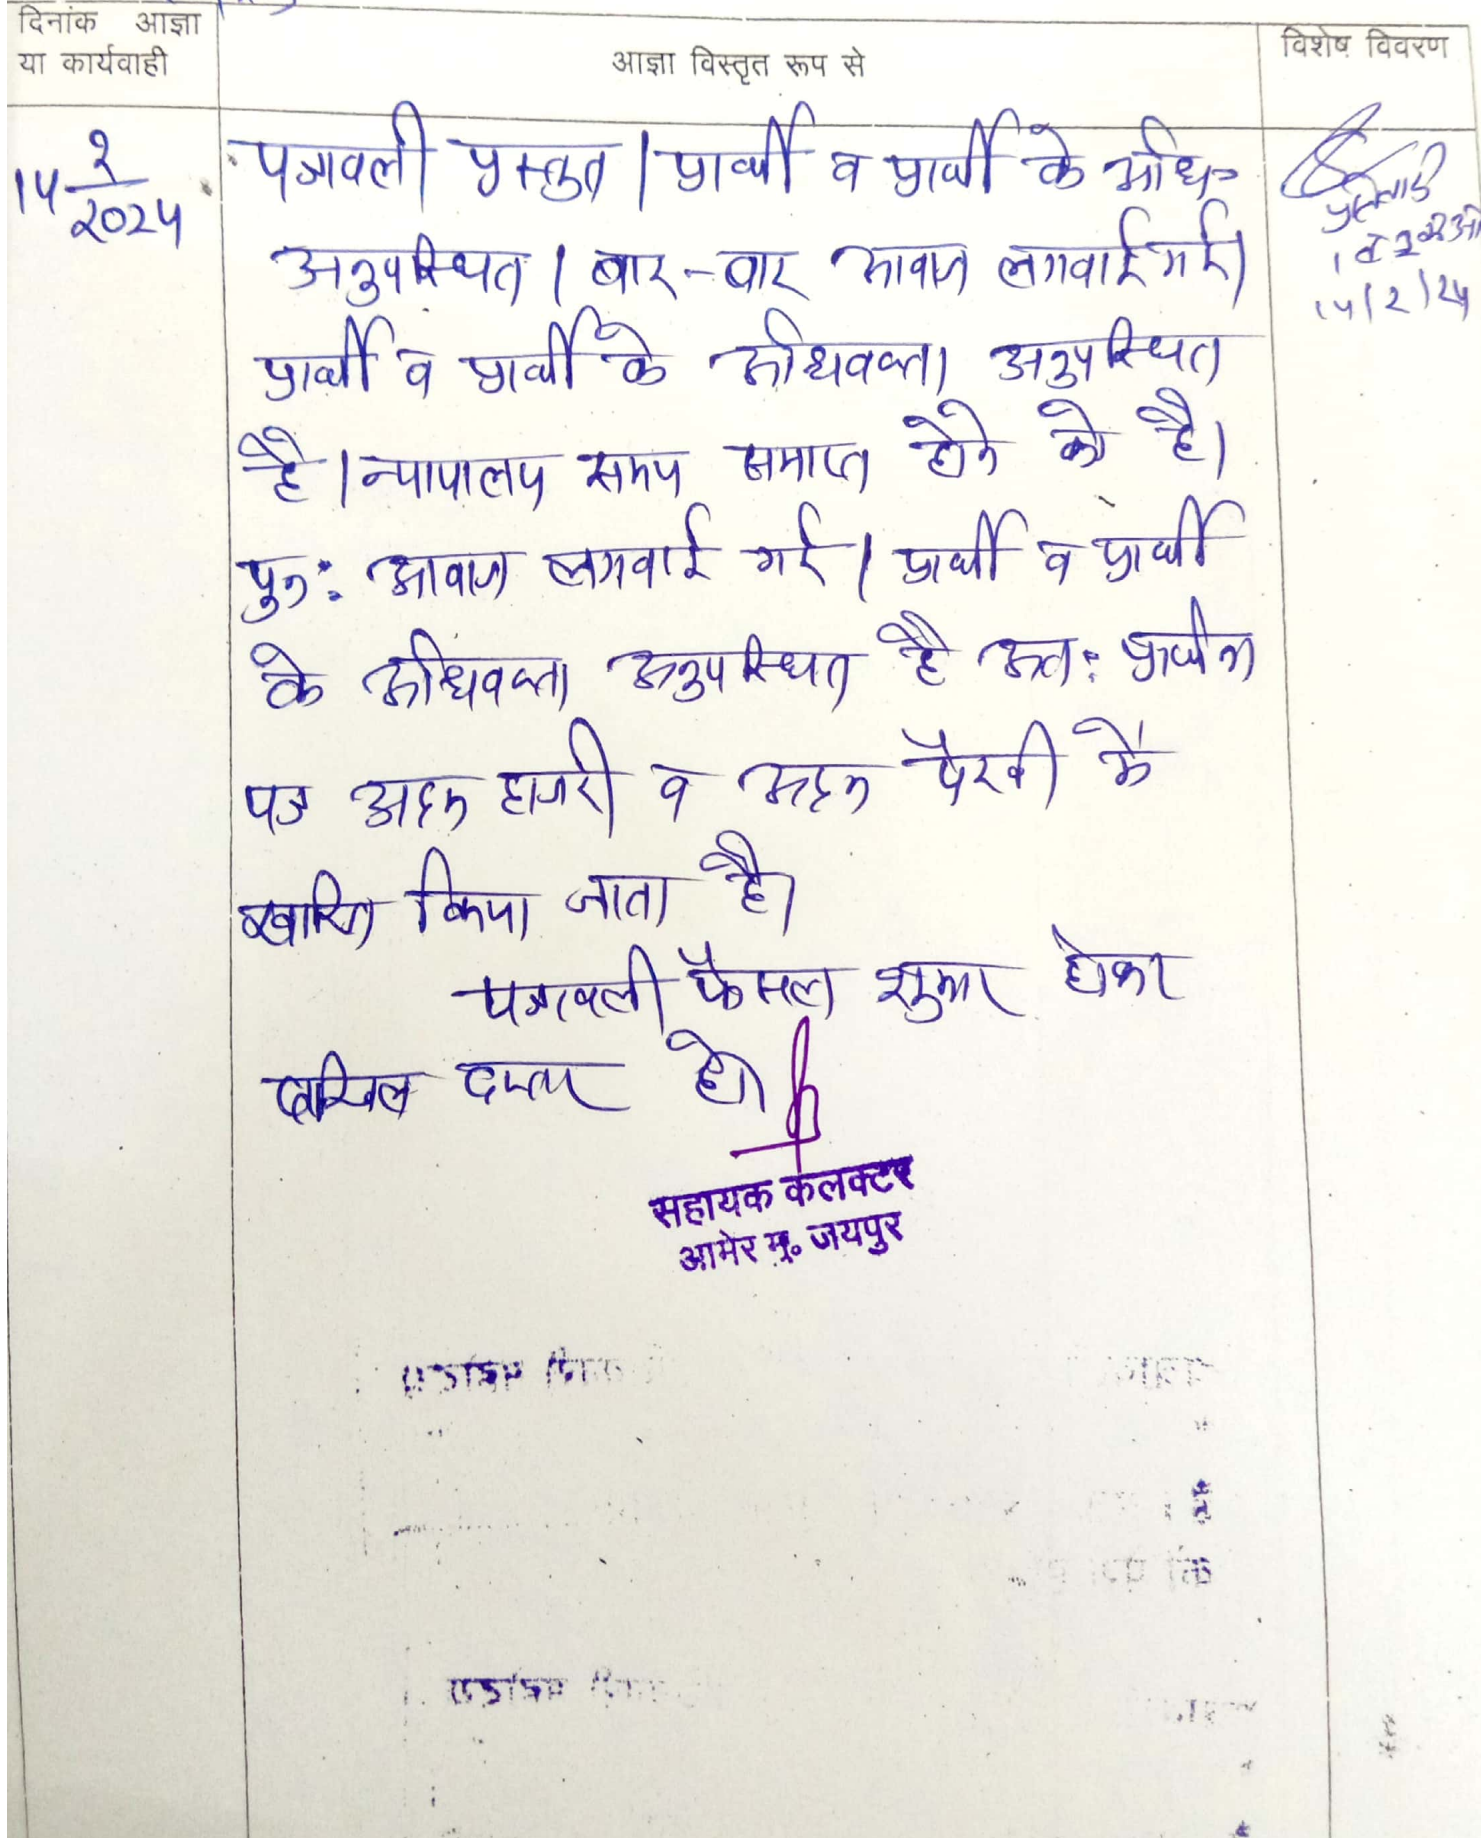 दिनांक आज्ञा
या कार्यवाही
आज्ञा विस्तृत रूप से
विशेष विवरण
पत्रावली प्रस्तुत। प्रार्थी व प्रार्थी के अधि०
अनुपस्थित। बार-बार आवाज लगवाई गई।
प्रार्थी व प्रार्थी के अधिवक्ता अनुपस्थित
है। न्यायालय समय समाप्त होने को है।
पुन: आवाज लगवाई गई। प्रार्थी व प्रार्थी
के अधिवक्ता अनुपस्थित है अत: प्रार्थना
पत्र अदम हाजरी व अदम पैरवी में
खारिज किया जाता है।
पत्रावली फैसल शुमार होकर
दाखिल दफ्तर हो।
सहायक कलक्टर
आमेर मु. जयपुर